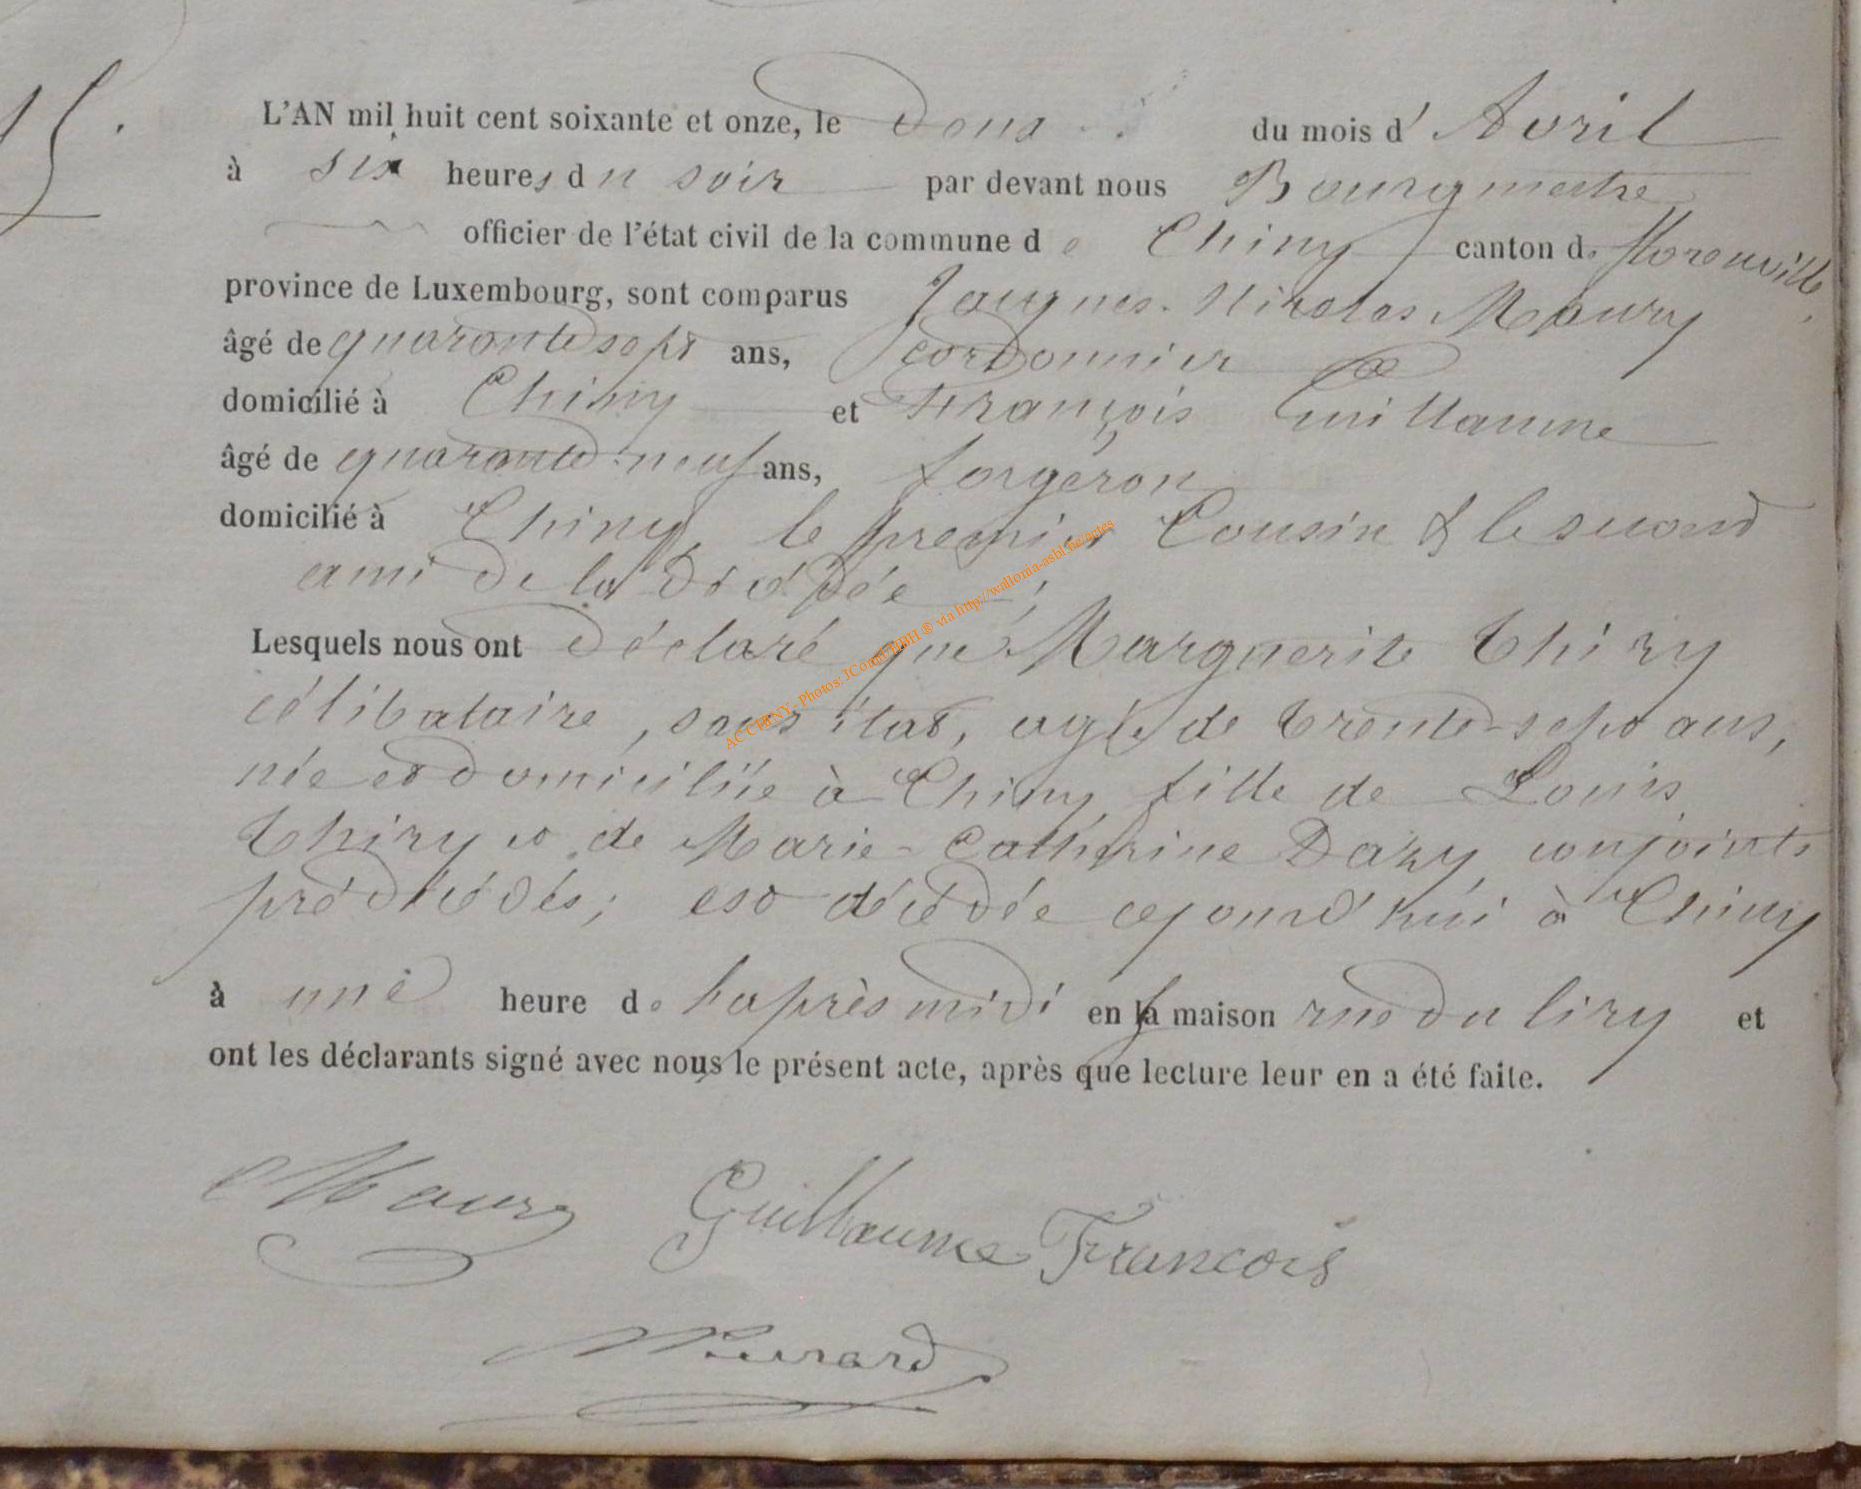 15.
L'AN mil huit cent soixante et onze, le du mois d' Avril
à six heures du soir par devant nous Bourgmestre
officier de l'état civil de la commune de Chiny canton de Florenville,
province de Luxembourg, sont comparus Jacques-Nicolas Maury
âgé de quarante sept ans, cordonnier
domicilié à Chiny et François Guillaume
âgé de quarante-neuf ans, forgeron
domicilié à Chiny, le premier Cousin & le second
ami de la décédée ;
Lesquels nous ont déclaré que Marguerite Thiry
célibataire, sans état, agée de trente-sept ans,
née et domiciliée à Chiny, fille de Louis
Thiry et de Marie-Catherine Dazy, conjoints
prédécédés; est décédée cejourd'hui à Chiny
à une heure de l'après midi en sa maison rue du liry et
ont les déclarants signé avec nous le présent acte, après que lecture leur en a été faite.
Maury Guillaume François
AC CHINY - Photos: via http://wallonia-asbl.be/actes